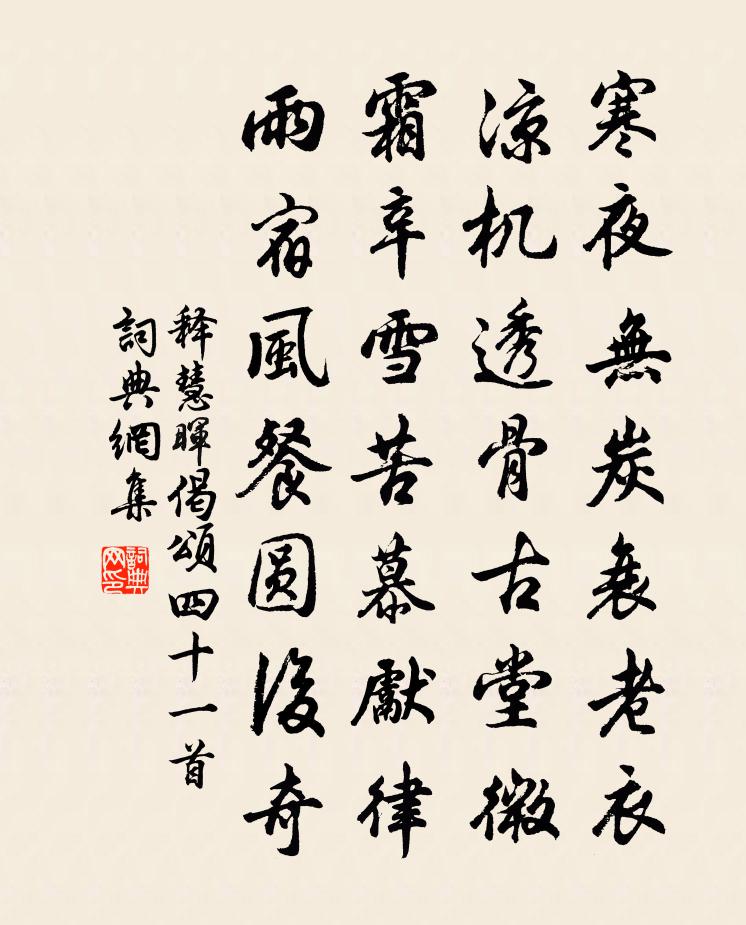 寒夜無炭衰老衣
凉机透骨古堂微
霜辛雪苦慕獻律
雨宿風餐圆後奇
释慧暉偈頌四十一首
詞典網集
詞典网印